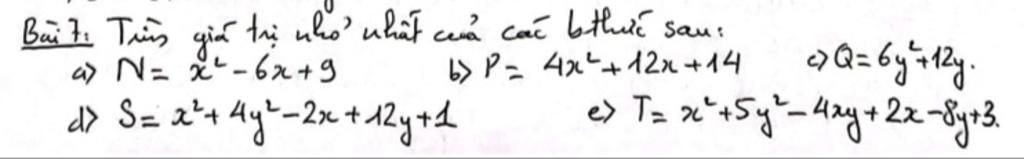 Bài 7: Tìm giá trị nhỏ nhất của các bthức sau:
a) N = x² - 6x + 9 b) P = 4x² + 12x + 14 c) Q = 6y² + 12y.
d) S = x² + 4y² - 2x + 12y + 1 e) T = x² + 5y² - 4xy + 2x - 8y + 3.